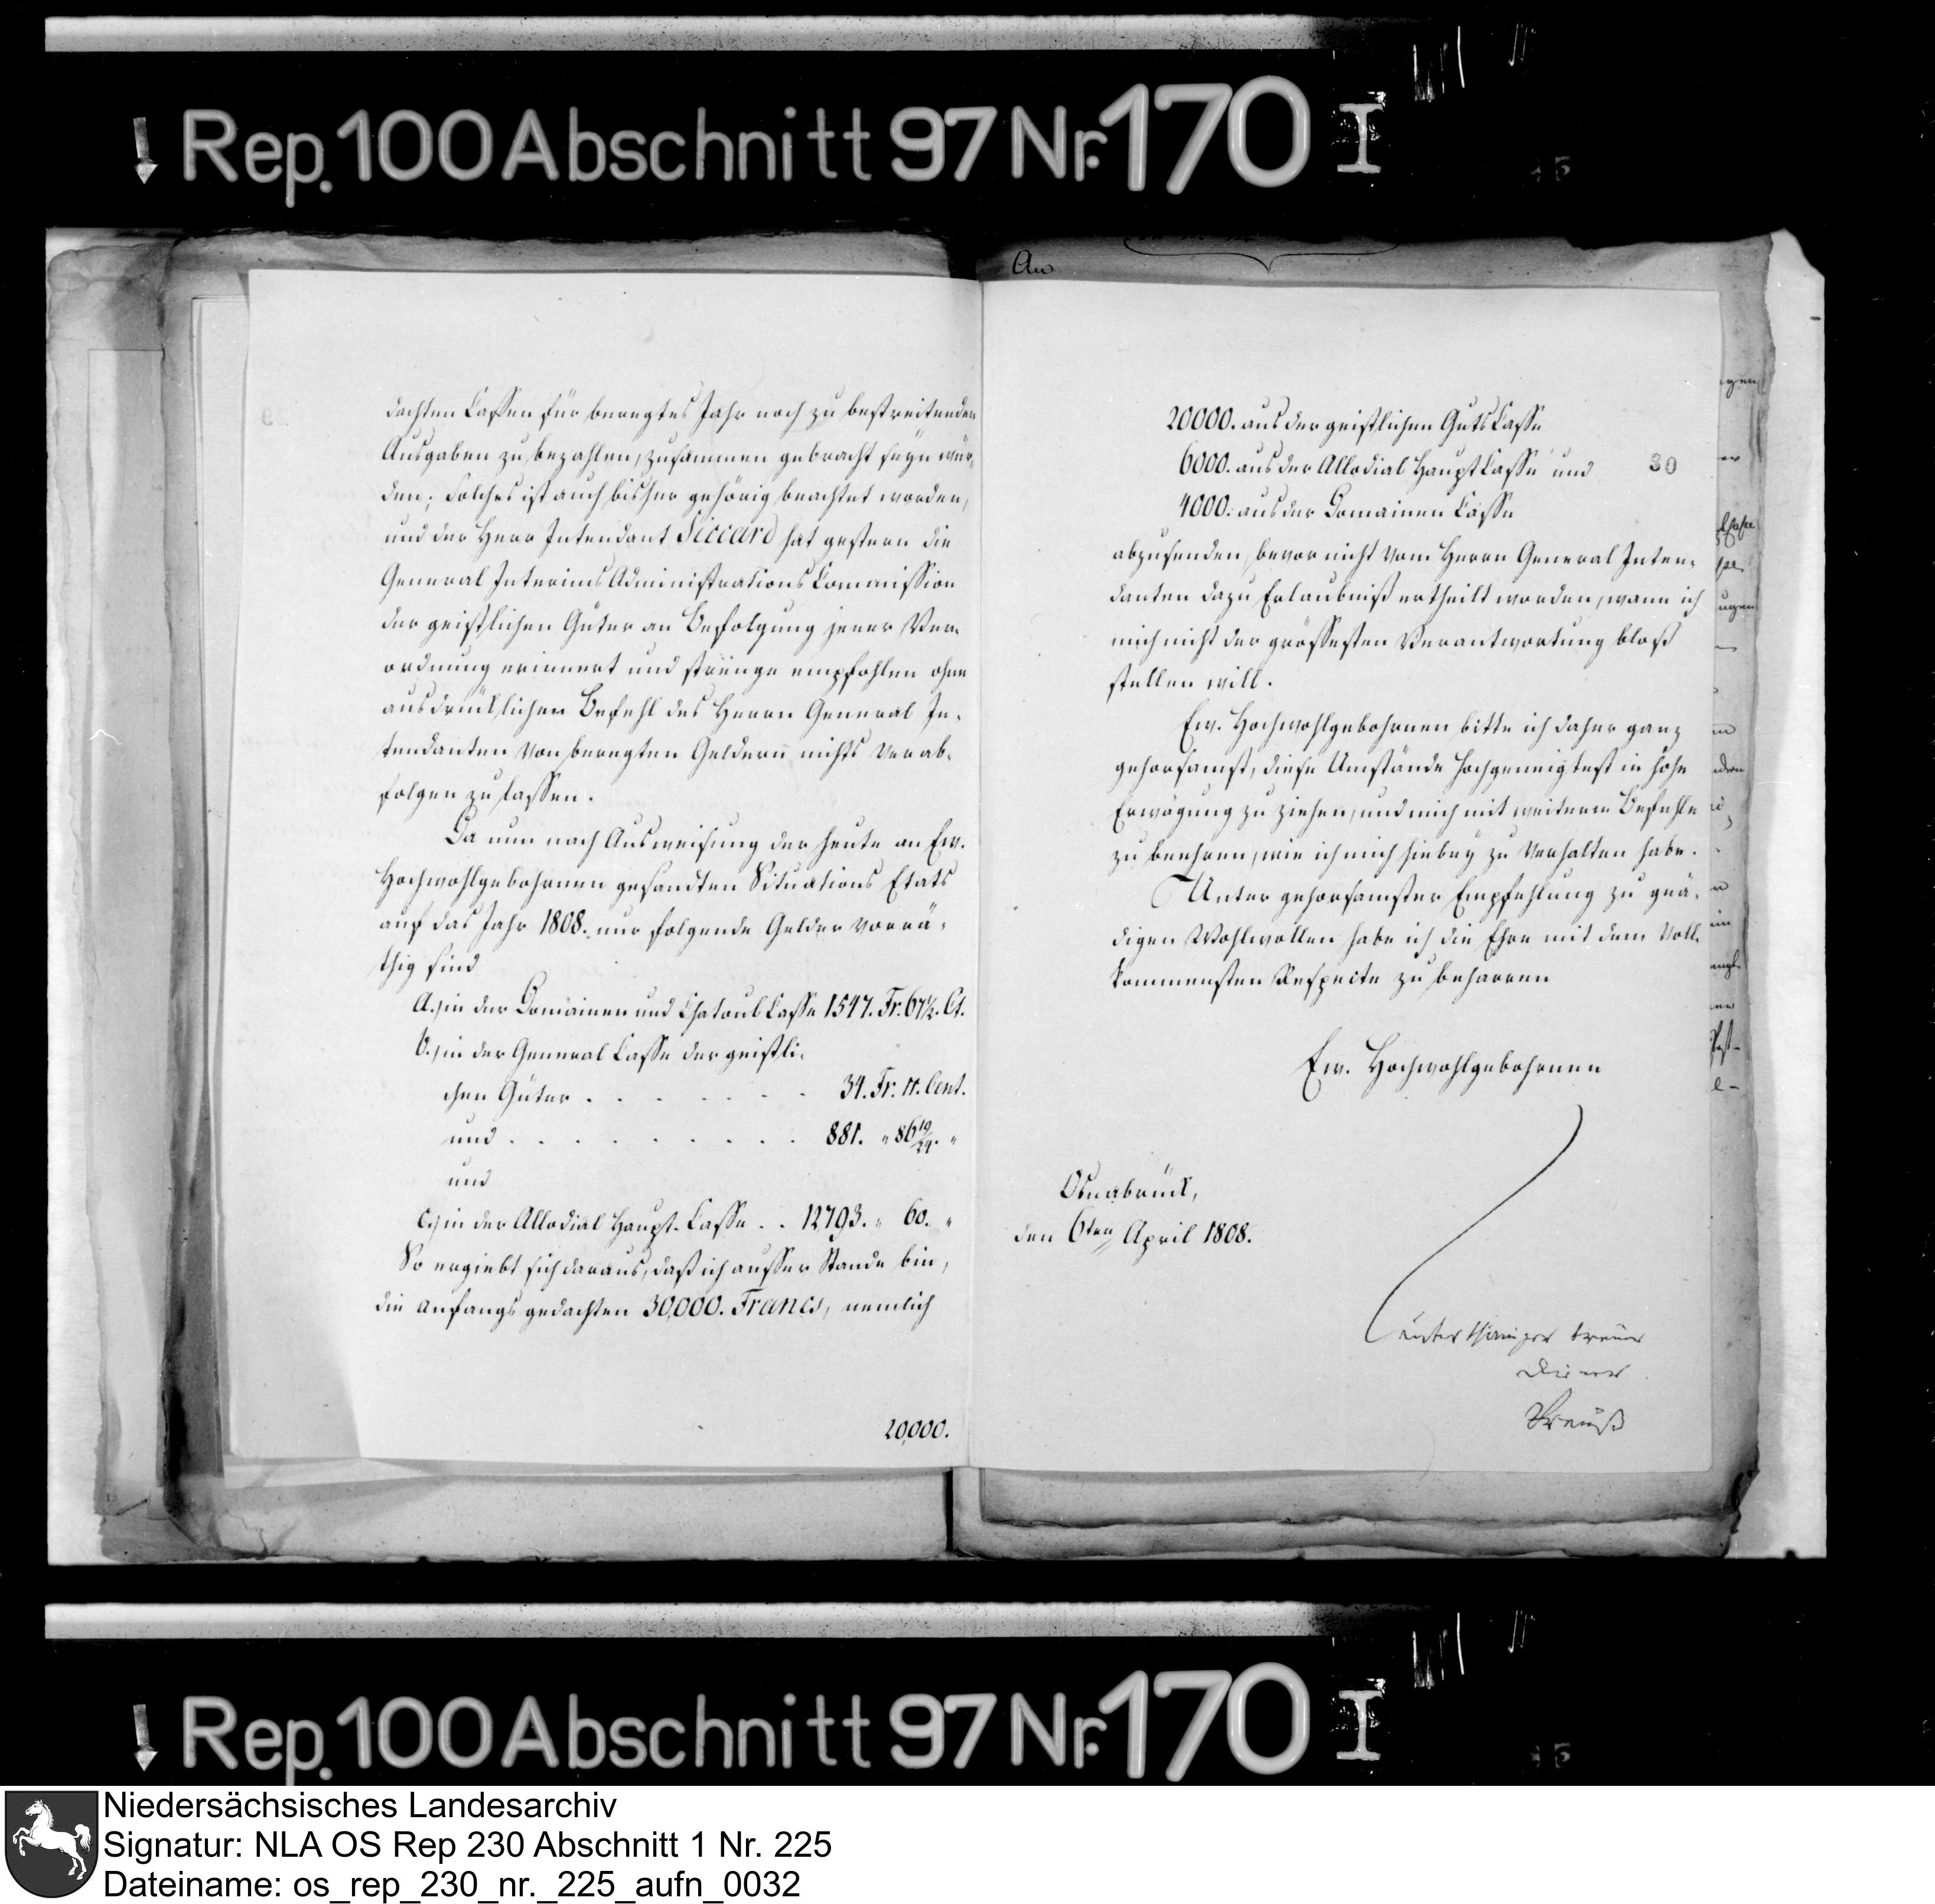 Rep. 100 Abschnitt 97 Nr. 170 I
dachten Cassen für beregtes Jahr noch zu bestreitenden
Ausgaben zu bezahlen, zusammen gebracht seyn wür-
den; Solches ist auch bisher gehörig beachtet worden,
und der Herr Intendant Siccard hat gestern die
General Interims Administrations Commission
der geistlichen Güter an Befolgung jener Ver-
ordnung erinnert und strenge empfohlen ohne
ausdrücklichen Befehl des Herrn General In-
tendanten von beregten Geldern nichts verab-
folgen zu lassen.
Da nun nach Ausweisung der heute an Ew.
Hochwohlgebohrnen gesandten Situations Etats
auf das Jahr 1808. nur folgende Gelder vorrä-
thig sind
a.) in der Domainen und Chatoul Casse 1547. Fr. 67½. Ct.
b.) in der General Casse der geistli-
chen Güter . . . . . . 34. Fr. 11. Cent.
und . . . . . . . . . 881. " 86 19/24. "
und
c.) in der Allodial Haupt-Casse . . 12793. " 60. "
So ergiebt sich daraus, daß ich ausser Stande bin,
die anfangs gedachten 30,000. Francs, nemlich
20,000.
An
20000. aus der geistlichen Guts Casse
6000. aus der Allodial Haupt Casse und
30
4000. aus der Domainen Casse
abzusenden, bevor nicht vom Herrn General Inten-
danten dazu Erlaubniß ertheilt worden, wann ich
mich nicht der grössesten Verantwortung bloß
stellen will.
Ew. Hochwohlgebohrnen bitte ich daher ganz
gehorsamst, diese Umstände hochgeneigtest in hohe
Erwägung zu ziehen, und mich mit weiterm Befehle
zu beehren, wie ich mich hiebey zu verhalten habe.
Unter gehorsamster Empfehlung zu gnä-
digen Wohlwollen habe ich die Ehre mit dem voll-
kommensten Respecte zu beharren
Ew. Hochwohlgebohrnen
Osnabrück,
den 6ten April 1808.
unterthäniger treuer
Diener
Struß
Rep. 100 Abschnitt 97 Nr. 170 I
Niedersächsisches Landesarchiv
Signatur: NLA OS Rep 230 Abschnitt 1 Nr. 225
Dateiname: os_rep_230_nr._225_aufn_0032